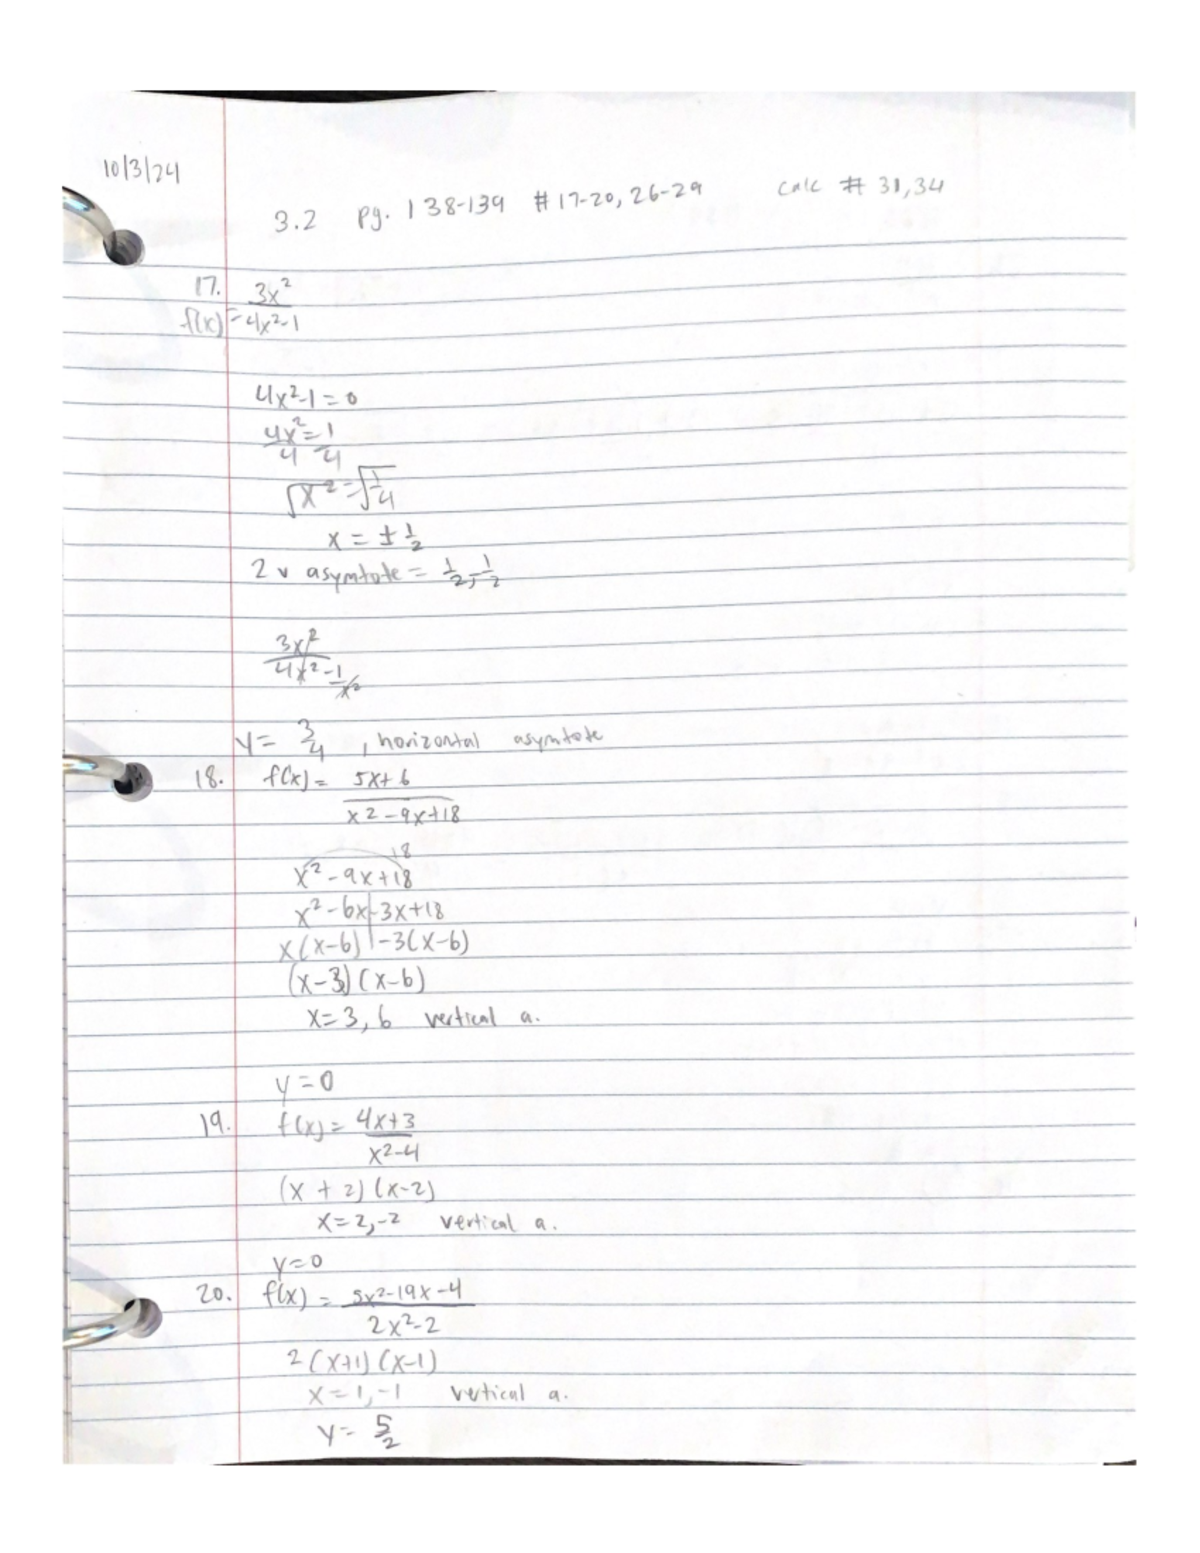 10/3/24
3.2 pg. 138-139 #17-20, 26-29 calc # 31,34
17. 3x²
f(x) = 4x²-1
4x²-1=0
4x²=1
4 4
√x²=√1/4
x = ± 1/2
2 v asymtote = 1/2, -1/2
3x²
4x²-1/x²
y= 3/4 , horizontal asymtote
18. f(x) = 5x+6
x2-9x+18
18
x²-9x+18
x²-6x-3x+18
x(x-6) -3(x-6)
(x-3)(x-6)
x=3, 6 vertical a.
y=0
19. f(x) = 4x+3
x2-4
(x + 2)(x-2)
x=2,-2 vertical a.
y=0
20. f(x) = 5x2-19x-4
2x2-2
2(x+1)(x-1)
x=1,-1 vertical a.
y= 5/2